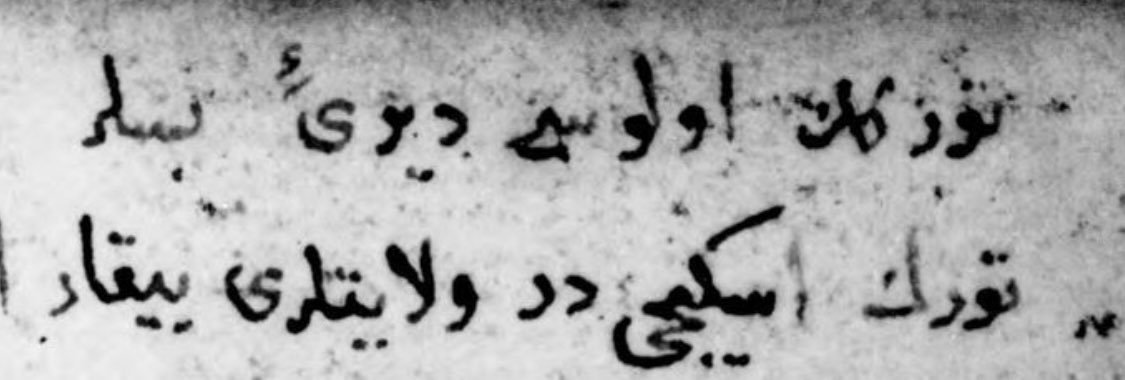 اولوسى ديوىٔ بسلر
تورك اسكيجى در ولايتلرى ييقار